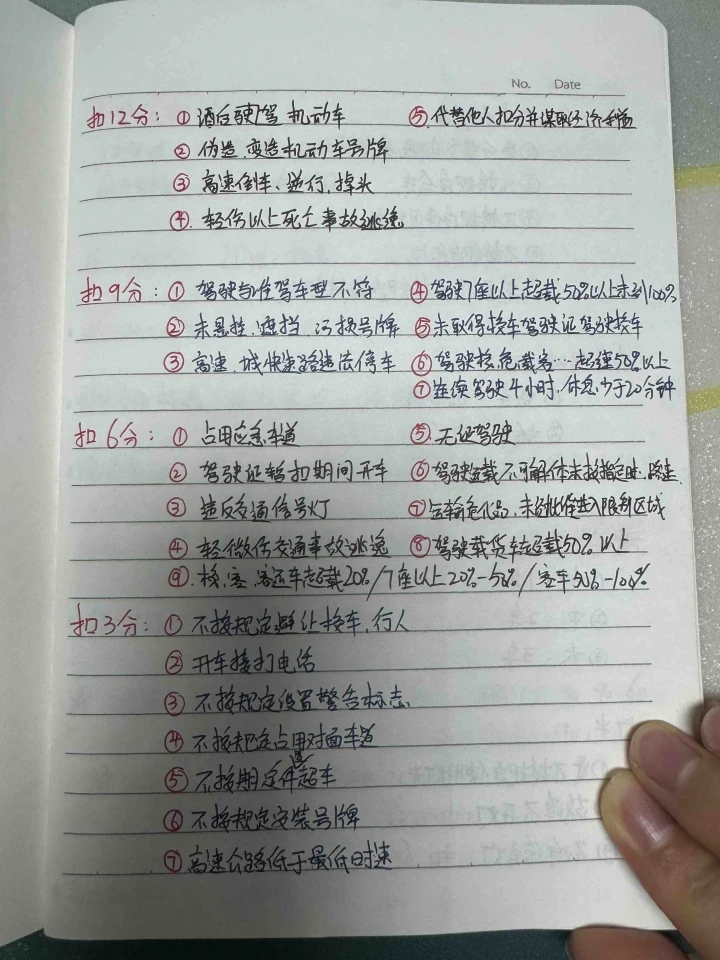 No. Date
扣12分: ① 酒后驶驾 机动车 ⑤.代替他人扣分并谋取经济利益
② 伪造.变造机动车号牌
③ 高速倒车、逆行.掉头
④. 轻伤以上死亡事故逃逸
扣9分: ① 驾驶与准驾车型不符 ④驾驶7座以上超载50%以上未到100%
② 未悬挂.遮挡 污损号牌 ⑤未取得校车驾驶证驾驶校车
③ 高速.城快速路违法停车 ⑥驾驶校.危载客…超速50%以上
⑦连续驾驶4小时.休息少于20分钟
扣6分: ① 占用应急车道 ⑤.无证驾驶
② 驾驶证暂扣期间开车 ⑥驾驶运载不可解体未按指定时.路速.
③ 违反交通信号灯 ⑦运输危化品.未经批准进入限制区域
④ 轻微伤交通事故逃逸 ⑧驾驶载货车超载50%以上
⑨. 校.客 客运车超载20%/7座以上20%-50%/客车50%-100%
扣3分: ① 不按规定避让校车.行人
② 开车接打电话
③ 不按规定设置警告标志
④ 不按规定占用对面车道
⑤ 不按期定件超车
⑥ 不按规定安装号牌
⑦ 高速公路低于最低时速